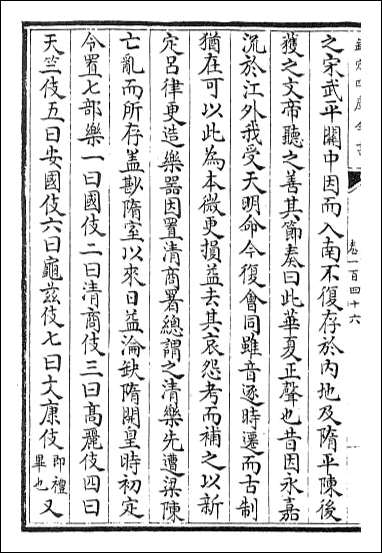 欽定四庫全書
卷一百四十六
之宋武平關中因而入南不復存於内地及隋平陳後
獲之文帝聽之善其節奏曰此華夏正聲也昔因永嘉
流於江外我受天明命今復會同雖音逐時遷而古制
猶在可以此為本微更損益去其哀怨考而補之以新
定呂律更造樂器因置清商署總謂之清樂先遭梁陳
亡亂而所存蓋尠隋室以來日益淪缺隋開皇時初定
令置七部樂一曰國伎二曰清商伎三曰髙麗伎四曰
天竺伎五曰安國伎六曰龜兹伎七曰文康伎即禮畢也又